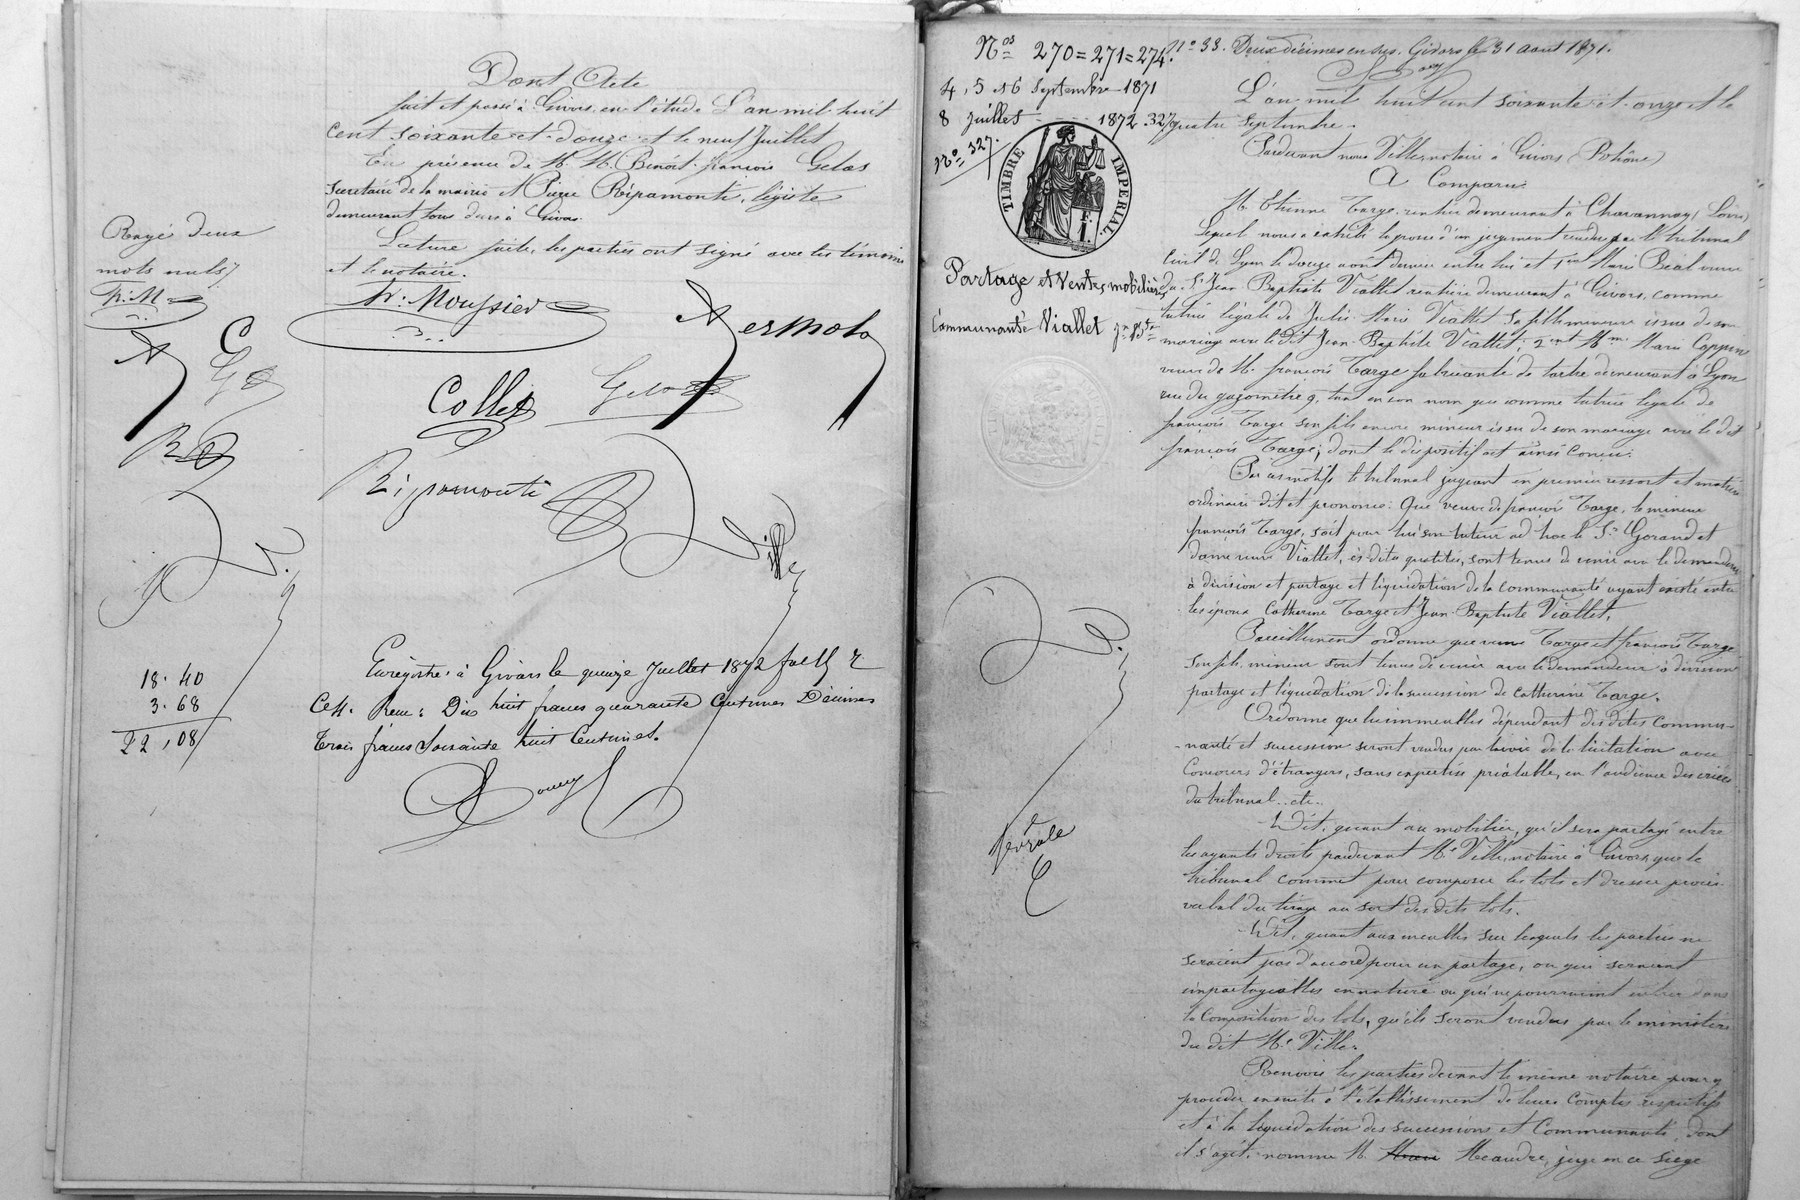 Dont Acte
fait et passé à Givors en l'étude L'an mil huit
cent soixante et douze et le neuf Juillet
En présence de M. M. Benoit François Gelas
secrétaire de la mairie et Pierre Ripamonti, légiste
demeurant tous deux à Givors
Lecture faite, les parties ont signé avec les témoins
et le notaire.
Rayé deux
mots nuls
Fr. Moussier
Collet
Gelas
Ripamonti
Ville
18.40
3.68
22,08
Enregistré à Givors le quinze Juillet 1872
Reçu: Dix huit francs quarante Centimes Décimes
trois francs soixante huit Centimes.
Nos 270=271=274.
4, 5 et 6 Septembre 1871
8 Juillet 1872. 327
No 327.
TIMBRE IMPERIAL
Partage et Ventes mobilières
Communauté Viallet Jn Bte
No 33. Deux décimes en sus. Givors le 31 août 1871.
L'an mil huit cent soixante et onze et le
quatre septembre.
Pardevant nous Ville notaire à Givors (Rhône)
A Comparu:
M. Etienne Targe, rentier demeurant à Chavannay (Loire)
Lequel nous a exhibé la grosse d'un jugement rendu par le tribunal
Civil de Lyon le douze août dernier entre lui et 1ent Marie Réal veuve
du Sr Jean Baptiste Viallet, rentière demeurant à Givors, comme
tutrice légale de Julie Marie Viallet sa fille mineure issue de son
mariage avec le dit Jean-Baptiste Viallet; 2ent Mme Marie Coppin
veuve de M. François Targe fabricante de tartre demeurant à Lyon
rue du gazomètre 9, tant en son nom que comme tutrice légale de
François Targe son fils encore mineur issu de son mariage avec le dit
François Targe; dont le dispositif est ainsi conçu:
Par ces motifs le tribunal jugeant en premier ressort et matière
ordinaire dit et prononce: Que veuve de François Targe, le mineur
François Targe, soit pour lui son tuteur ad hoc le Sr Gorand et
dame veuve Viallet, ès dites qualités, sont tenus de venir avec le demandeur
à division et partage et liquidation de la communauté ayant existé entre
les époux Catherine Targe et Jean-Baptiste Viallet.
Pareillement ordonne que veuve Targe et François Targe
son fils mineur sont tenus de venir avec le demandeur à division
partage et liquidation de la succession de Catherine Targe.
Ordonne que les immeubles dépendant des dites commu-
nauté et succession seront vendus par la voie de la licitation avec
Concours d'étrangers, sans expertise préalable, en l'audience des criées
du tribunal. etc.
Dit, quant au mobilier, qu'il sera partagé entre
les ayants droits pardevant Me Ville, notaire à Givors, que le
tribunal commet pour composer les lots et dresser procès
verbal du tirage au sort des dits lots.
Dit, quant aux meubles sur lesquels les parties ne
seraient pas d'accord pour un partage, ou qui seraient
impartageables en nature ou qui ne pourraient entrer dans
la Composition des lots, qu'ils seront vendus par le ministère
du dit Me Ville.
Renvoie les parties devant le même notaire pour y
procéder ensuite à l'établissement de leurs Comptes respectifs
et à la liquidation des successions et Communauté, dont
il s'agit. nomme M. Meaudre, juge en ce siège